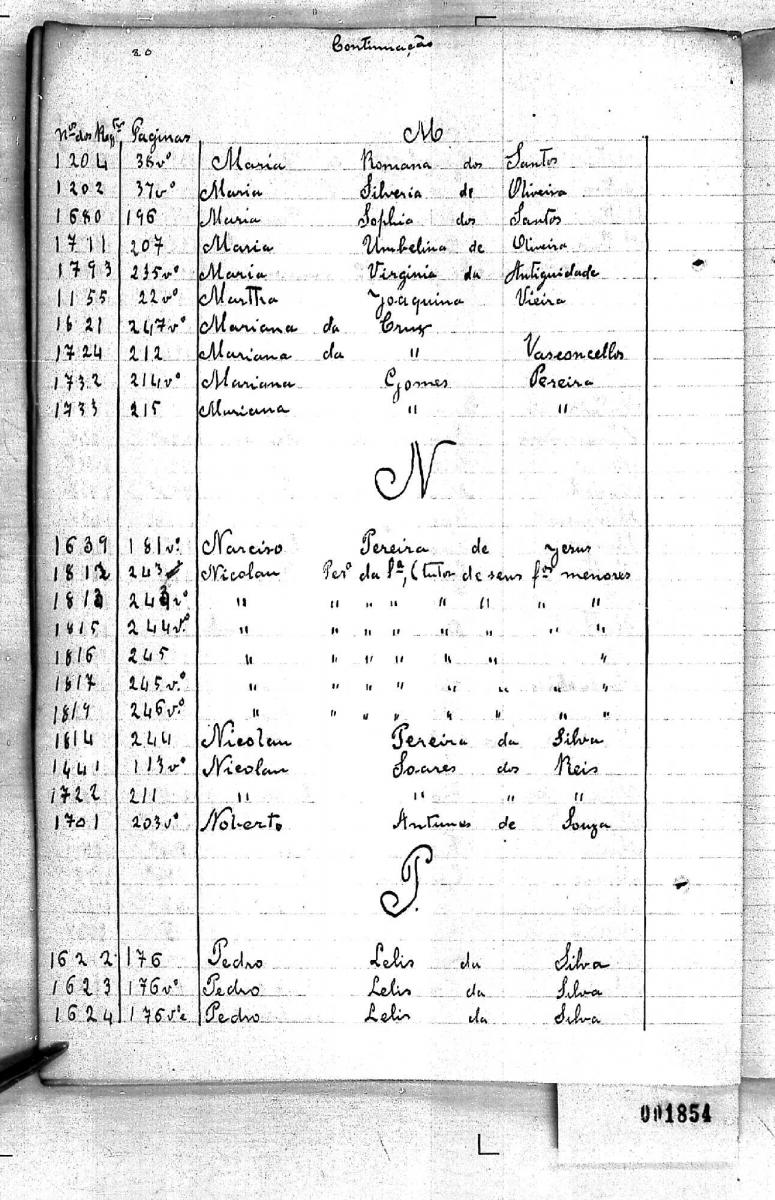 20
Continuação
Nos dos Regtos Paginas M
1204 38vº Maria Romana dos Santos
1202 37vº Maria Silveria de Oliveira
1680 196 Maria Sophia dos Santos
1711 207 Maria Umbelina de Oliveira
1793 235vº Maria Virginia da Antiguidade
1155 22vº Martha Joaquina Vieira
1821 247vº Mariana da Cruz
1724 212 Mariana da " Vasconcellos
1732 214vº Mariana Gomes Pereira
1733 215 Mariana " "
N
1639 181vº Narciso Pereira de Jesus
1812 243 Nicolau Perº da Sª, (tutor de seus fos menores
1813 243vº " " " " " " " "
1815 244vº " " " " " " " "
1816 245 " " " " " " "
1817 245vº " " " " " " " "
1819 246vº " " " " " " " "
1814 244 Nicolau Pereira da Silva
1441 113vº Nicolau Soares dos Reis
1722 211 " " " "
1701 203vº Noberto Antunes de Souza
P.
1622 176 Pedro Lelis da Silva
1623 176vº Pedro Lelis da Silva
1624 176vº Pedro Lelis da Silva
001854